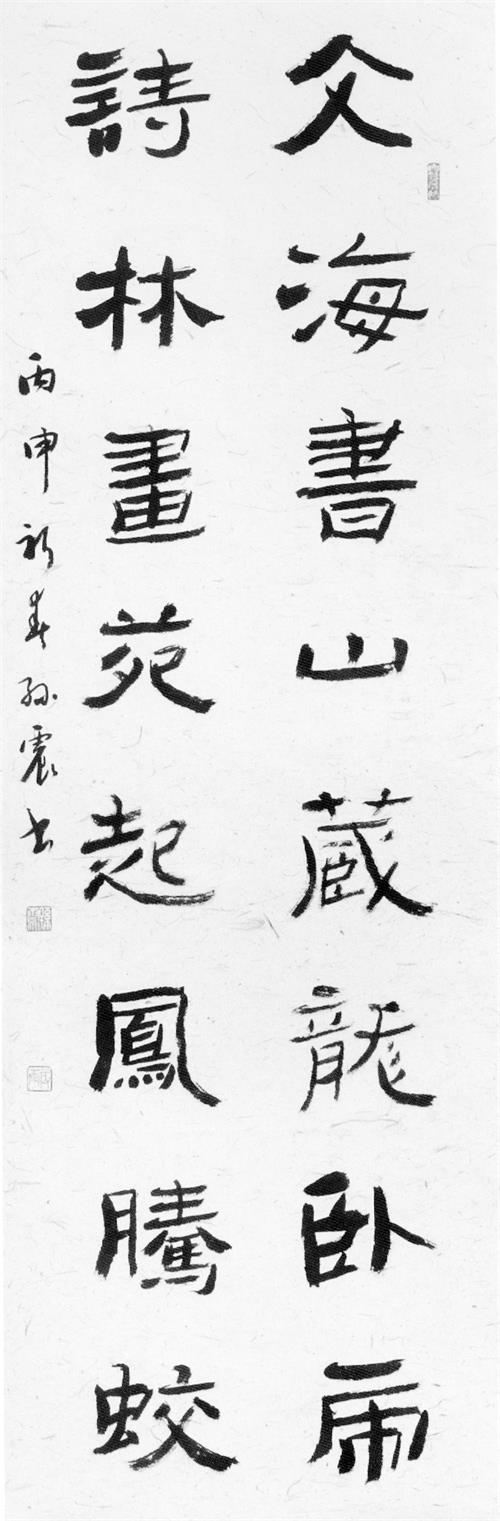 文海書山蔵龍卧虎
詩林畫苑起鳳騰蛟
丙申新春孫震書